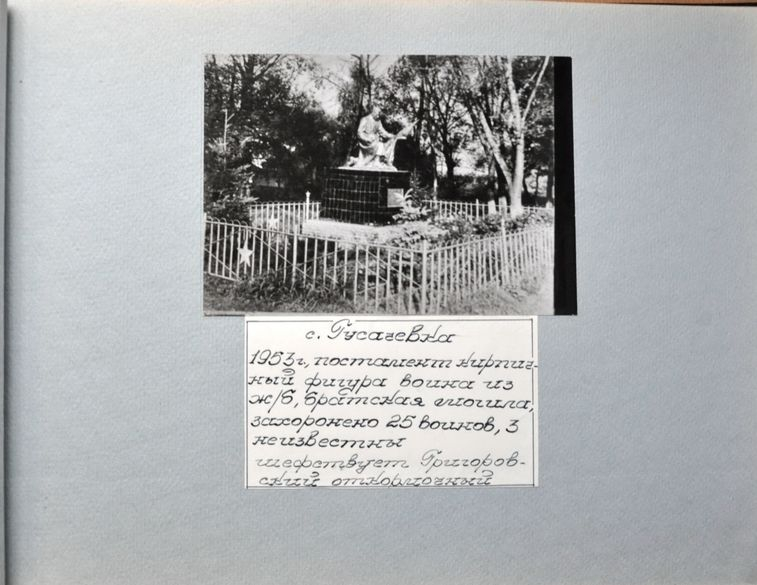 с. Гусачевка
1953г., постамент кирпич-
ный фигура воина из
ж/б, братская могила,
захоронено 25 воинов, 3
неизвестны
шефствует Григоров-
ский откормочный